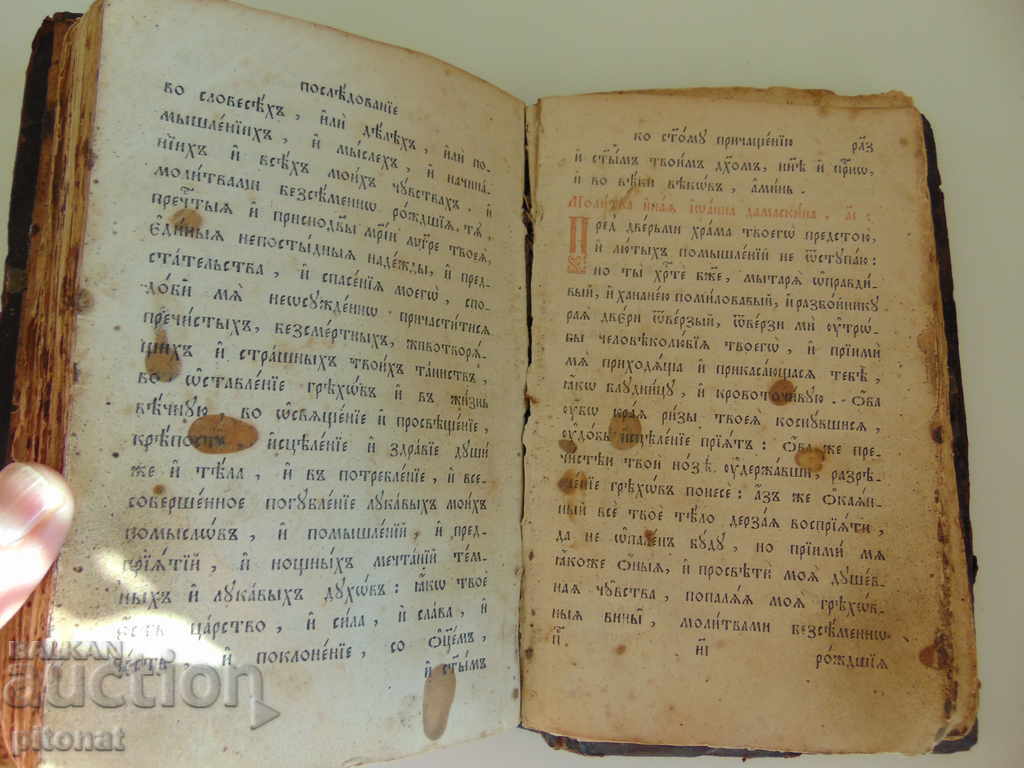 послѣ́дованїе
во словесѣ́хъ, и҆лѝ дѣ́лѣхъ, и҆лѝ по-
мышле́нїихъ, и҆ мы́слехъ, и҆ начина́-
нїихъ и҆ всѣ́хъ мои́хъ чꙋ́вствахъ. и҆
моли́твами безсѣ́меннѡ ро́ждшїѧ, тѧ̀,
пречⷭ҇тыѧ и҆ присноⷣвы мр҃і́и мт҃ре твоеѧ̀,
є҆ди́ныѧ непосты́дныѧ наде́жды, и҆ пред-
ста́тельства, и҆ спасе́нїѧ моегѡ̀, спо-
до́би мѧ̀ неѡсꙋжде́ннѡ причасти́тисѧ
пречи́стыхъ, безсме́ртныхъ, животворѧ́-
щихъ и҆ стра́шныхъ твои́хъ та́инствъ,
во ѡ҆ставле́нїе грѣхѡ́въ и҆ въ жи́знь
вѣ́чнꙋю, во ѡ҆свѧще́нїе и҆ просвѣще́нїе,
крѣ́пость, и҆сцѣле́нїе и҆ здра́вїе дꙋши́
же и҆ тѣ́ла, и҆ въ потребле́нїе, и҆ все-
соверше́нное погꙋбле́нїе лꙋка́выхъ мои́хъ
помыслѡ́въ, и҆ помышле́нїй, и҆ пред-
прїѧ́тїй, и҆ нощны́хъ мечта́нїй те́м-
ныхъ и҆ лꙋка́выхъ дꙋхѡ́въ: ꙗ҆́кѡ твоѐ
є҆́сть ца́рство, и҆ си́ла, и҆ сла́ва, и҆
че́сть, и҆ поклоне́нїе, со ѻ҆ц҃е́мъ,
и҆ ст҃ы́мъ
ко ст҃о́мꙋ причаще́нїю
рл҃з
и҆ ст҃ы́мъ твои́мъ дх҃омъ, нн҃ѣ и҆ прⷭ҇нѡ,
и҆ во вѣ́ки вѣкѡ́въ, а҆ми́нь.
Моли́тва и҆на́ѧ і҆ѡа́нна дамаски́на, а҃ :
Пред̾ две́рьми хра́ма твоегѡ̀ предстою̀,
и҆ лю́тыхъ помышле́нїй не ѿстꙋпа́ю:
но ты̀ хрⷭ҇тѐ бж҃е, мытарѧ̀ ѡ҆правди́-
вый, и҆ ханане́ю поми́ловавый, и҆ разбо́йникꙋ
раѧ̀ две́ри ѿве́рзый, ѿве́рзи мѝ ᲂу҆тро́-
бы человѣколю́бїѧ твоегѡ̀, и҆ прїимѝ
мѧ̀ приходѧ́ща и҆ прикаса́ющасѧ тебѣ̀,
ꙗ҆́кѡ блꙋдни́цꙋ, и҆ кровоточи́вꙋю. ѻ҆́ва
ᲂу҆́бѡ кра́ѧ ри́зы твоеѧ̀ коснꙋ́вшисѧ,
ᲂу҆до́бь и҆сцѣле́нїе прїѧ́тъ: ѻ҆́ва же пре-
чи́стѣи твоѝ но́зѣ ᲂу҆держа́вши, разрѣ-
ше́нїе грѣхѡ́въ понесѐ: а҆́зъ же ѻ҆каѧ́н-
ный всѐ твоѐ тѣ́ло дерза́ѧ воспрїѧ́ти,
да не ѡ҆пале́нъ бꙋ́дꙋ, но прїимѝ мѧ̀
ꙗ҆́коже ѻ҆́ныѧ, и҆ просвѣтѝ моѧ̑ дꙋше́в-
наѧ чꙋ̑вства, попалѧ́ѧ моѧ̑ грѣхѡ́в-
ныѧ вины̑, моли́твами безсѣ́меннѡ
и҃і
ро́ждшїѧ
BALKAN
auction
pitonat